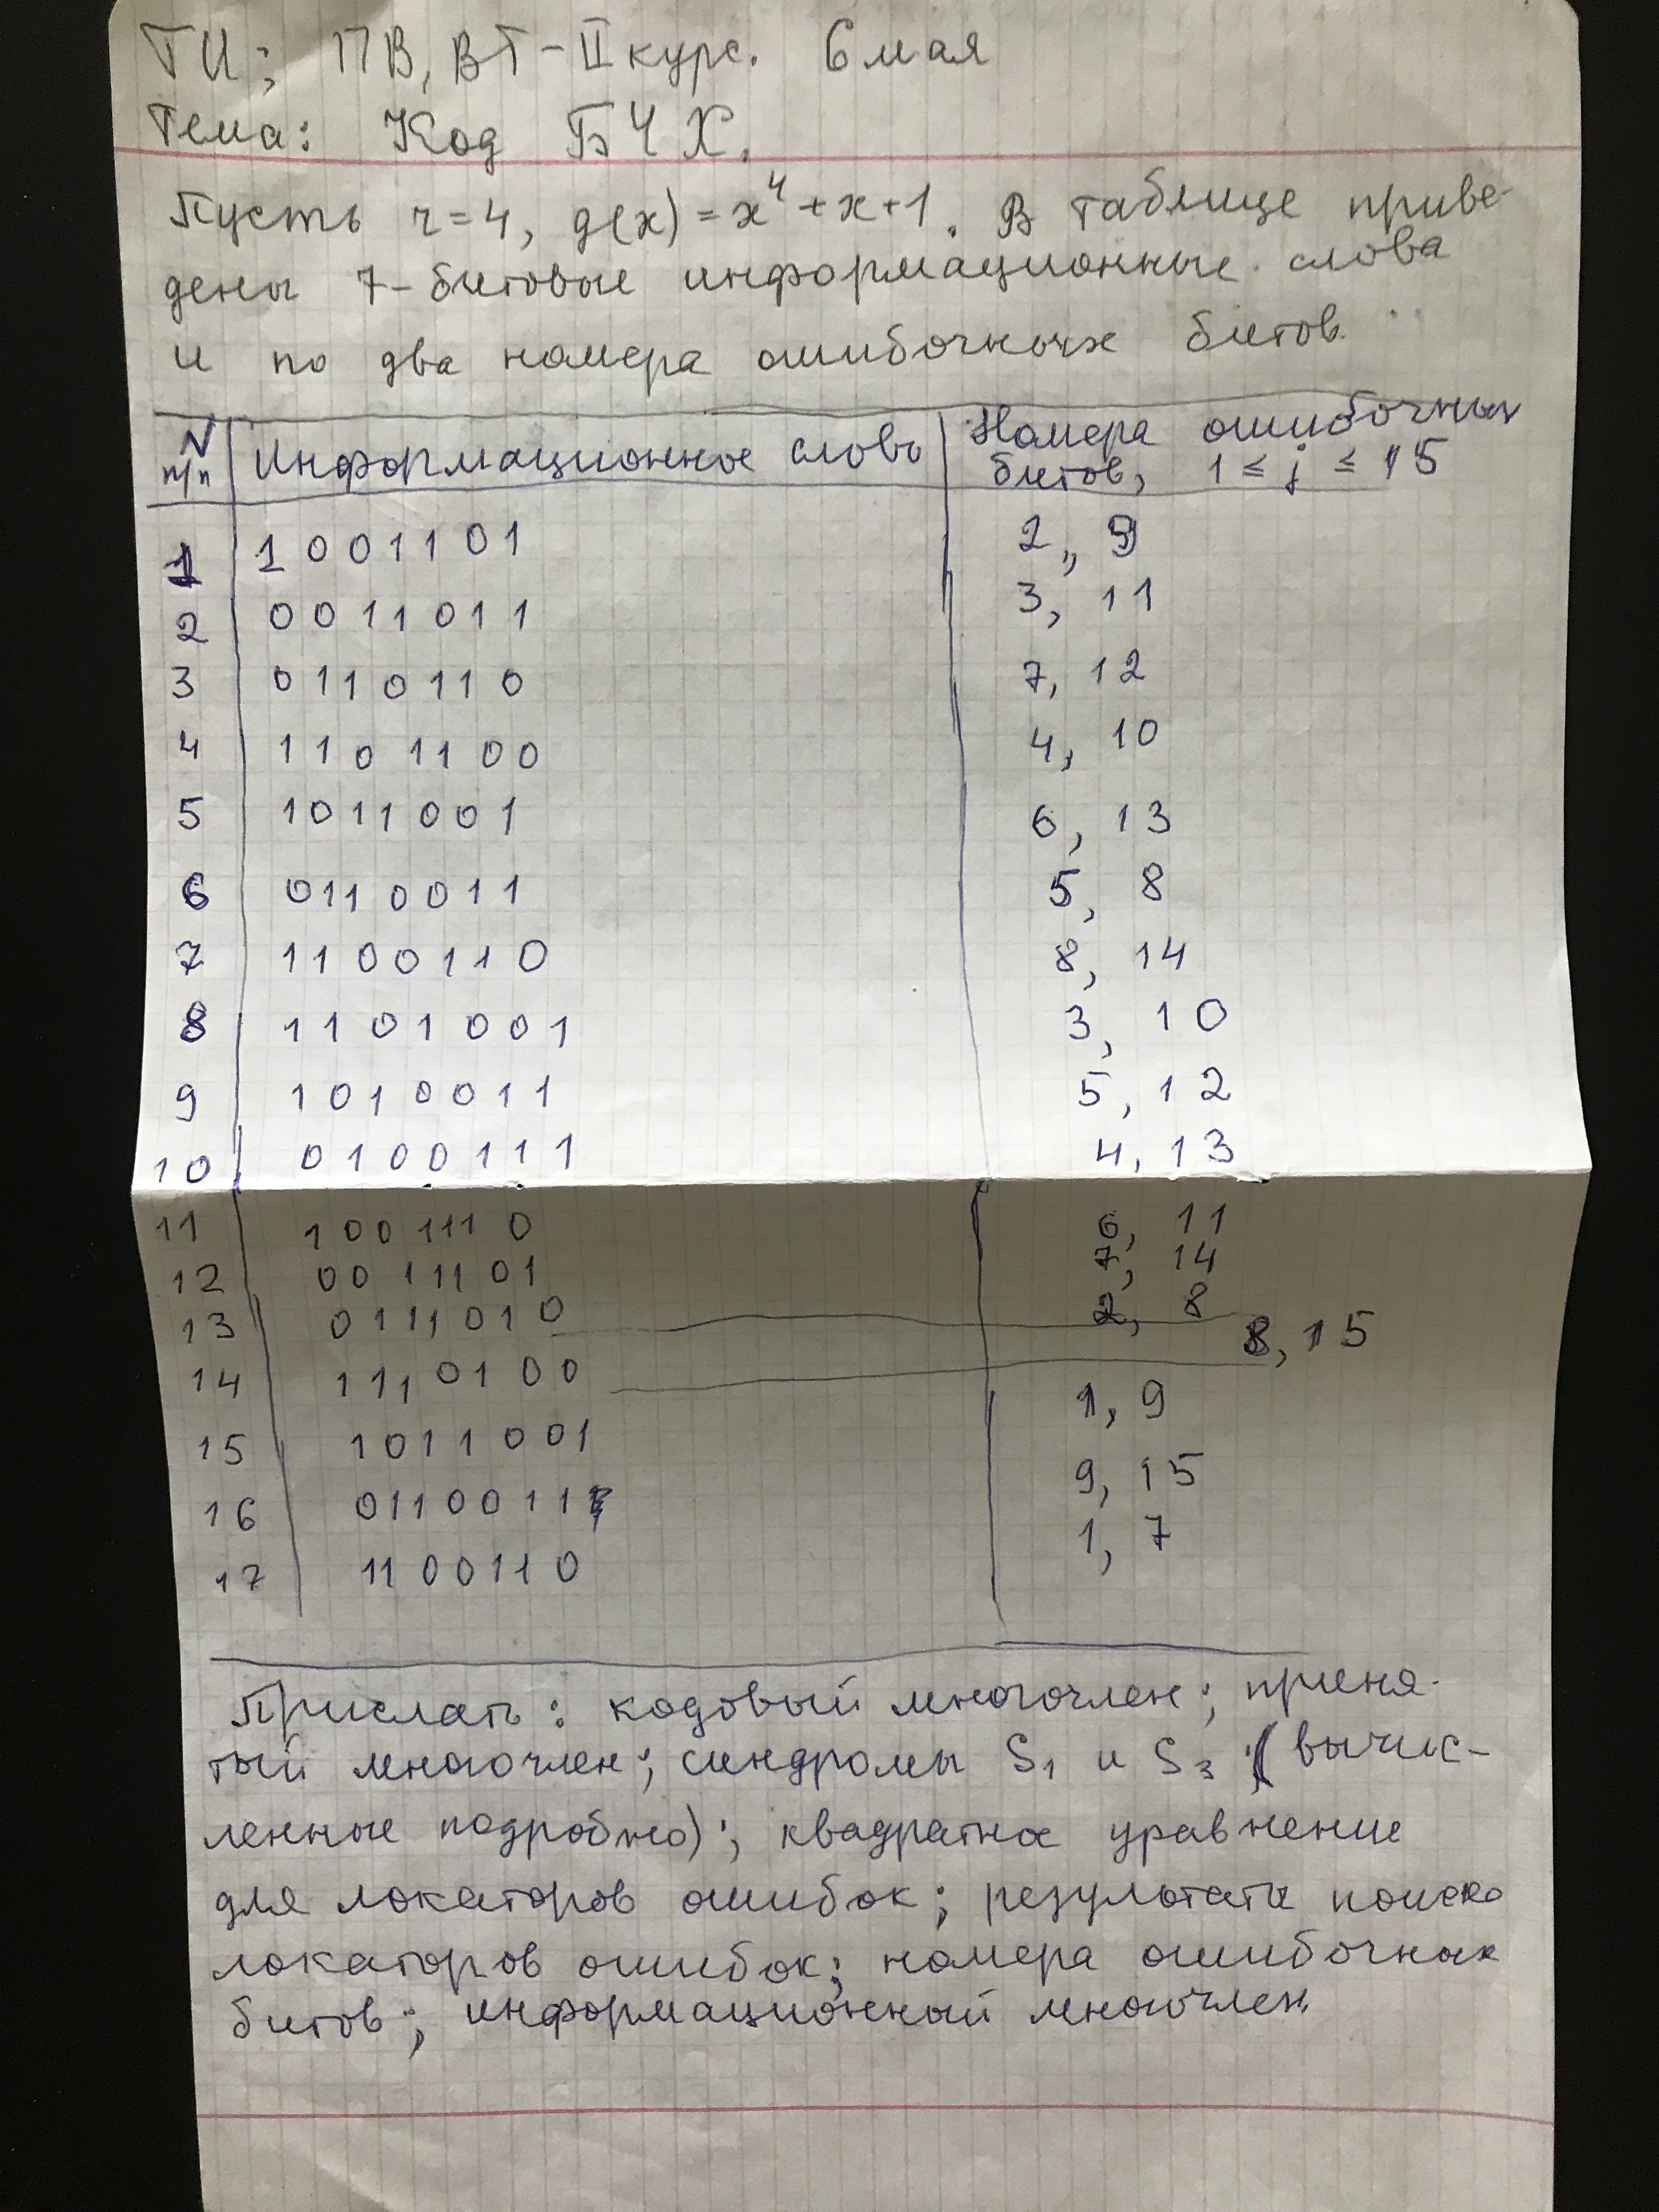 ТИ; ПВ, ВТ-II курс. 6 мая
Тема: Код БЧХ.
Пусть r=4, g(x)=x⁴+x+1. В таблице приве-
дены 7-битовые информационные слова
и по два номера ошибочных битов
N п/п Информационное слово Номера ошибочных битов, 1 ≤ j ≤ 15
1 1001101 2, 9
2 0011011 3, 11
3 0110110 7, 12
4 1101100 4, 10
5 1011001 6, 13
6 0110011 5, 8
7 1100110 8, 14
8 1101001 3, 10
9 1010011 5, 12
10 0100111 4, 13
11 1001110 6, 11
12 0011101 7, 14
13 0111010 2, 8
14 1110100 8, 15
15 1011001 1, 9
16 0110011 9, 15
17 1100110 1, 7
Прислать: кодовый многочлен; приня-
тый многочлен; синдромы S₁ и S₃ (вычис-
ленные подробно); квадратное уравнение
для локаторов ошибок; результаты поиска
локаторов ошибок; номера ошибочных
битов; информационный многочлен